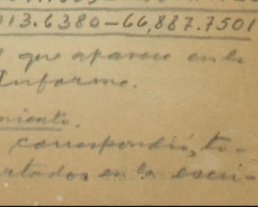 013.6380-66,887.7501
que aparece en la
Informe.
miento.
correspondió, to-
rtados en la escri-